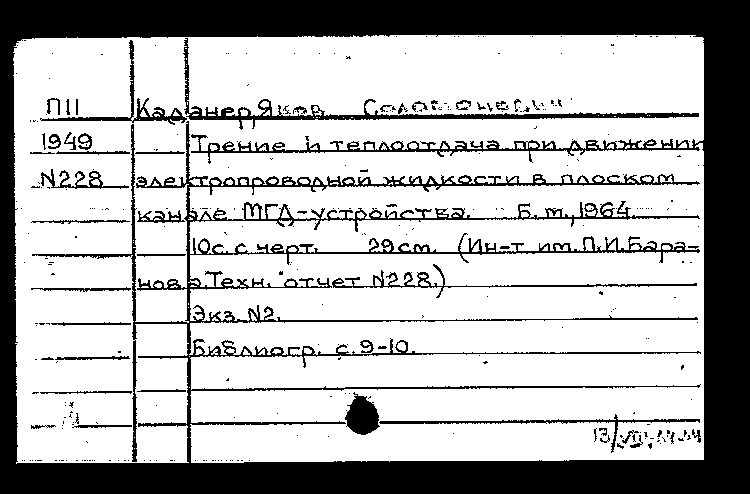 П11 Каданер, Яков Соломонович
1949 Трение и теплоотдача при движении
N228 электропроводной жидкости в плоском
канале МГД-устройства. Б.м., 1964.
10с. с черт. 29см. (Ин-т им. П.И.Бара=
нова. Техн. отчет N228.)
Экз. N2.
Библиогр. с. 9-10.